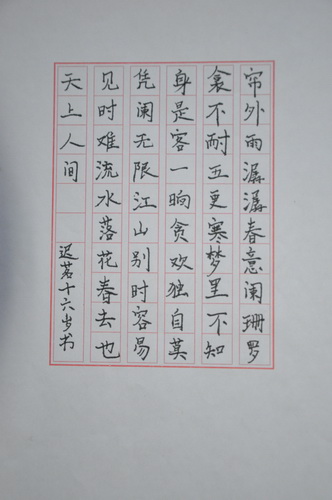 帘外雨潺潺春意阑珊罗
衾不耐五更寒梦里不知
身是客一晌贪欢独自莫
凭阑无限江山别时容易
见时难流水落花春去也
天上人间
迟茗十六岁书